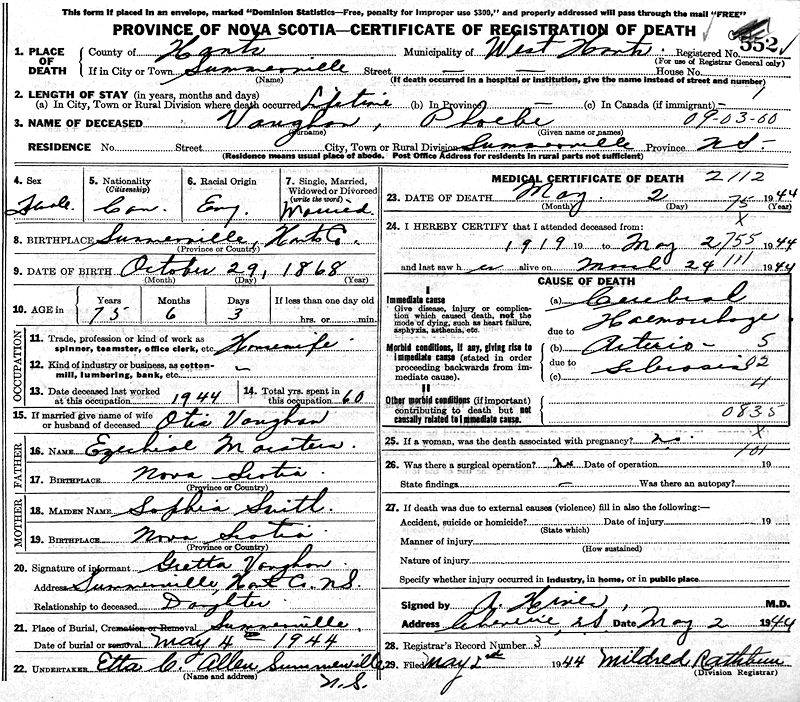 This form if placed in an envelope, marked "Dominion Statistics—Free, penalty for improper use $300," and properly addressed will pass through the mail "FREE"
PROVINCE OF NOVA SCOTIA—CERTIFICATE OF REGISTRATION OF DEATH
552
1. PLACE OF DEATH County of Hants Municipality of West Hants Registered No.
(For use of Registrar General only)
If in City or Town Summerville Street — — House No.
(Name) (If death occurred in a hospital or institution, give the name instead of street and number)
2. LENGTH OF STAY (in years, months and days)
(a) In City, Town or Rural Division where death occurred Lifetime (b) In Province — (c) In Canada (if immigrant) -
3. NAME OF DECEASED Vaughan, Phoebe 09-03-00
(Surname) (Given name or names)
RESIDENCE No. Street City, Town or Rural Division Summerville Province N.S.
(Residence means usual place of abode. Post Office Address for residents in rural parts not sufficient)
4. Sex 5. Nationality (Citizenship) 6. Racial Origin 7. Single, Married, Widowed or Divorced (write the word)
Can. Eng. Married
8. BIRTHPLACE Summerville, Hants Co.
(Province or Country)
9. DATE OF BIRTH October 29, 1868
(Month) (Day) (Year)
10. AGE in Years Months Days If less than one day old
75 6 3 hrs. or min.
OCCUPATION
11. Trade, profession or kind of work as spinner, teamster, office clerk, etc. Housewife
12. Kind of industry or business, as cotton-mill, lumbering, bank, etc. -
13. Date deceased last worked at this occupation 1944 14. Total yrs. spent in this occupation 60
15. If married give name of wife or husband of deceased Otis Vaughan
FATHER
16. NAME Ezekiel
17. BIRTHPLACE Nova Scotia
(Province or Country)
MOTHER
18. MAIDEN NAME Sophia Smith
19. BIRTHPLACE Nova Scotia
(Province or Country)
20. Signature of informant Gretta Vaughan
Address Summerville, Hants Co. N.S.
Relationship to deceased Daughter
21. Place of Burial, Cremation or Removal Summerville,
Date of burial or removal May 4th 1944
22. UNDERTAKER Etta C. Allen Summerville
(Name and address) N.S.
MEDICAL CERTIFICATE OF DEATH 2112
23. DATE OF DEATH May 2 1944
(Month) (Day) (Year)
75
x
24. I HEREBY CERTIFY that I attended deceased from:
1919 19 to May 2 1944
755
and last saw her alive on March 24 1944
111
CAUSE OF DEATH
I
Immediate cause
Give disease, injury or complication which caused death, not the mode of dying, such as heart failure, asphyxia, asthenia, etc.
(a) Cerebral
due to Haemorrhage
Morbid conditions, if any, giving rise to immediate cause (stated in order proceeding backwards from immediate cause).
(b) Arterio- 5
due to Sclerosis 82
(c) 4
II
Other morbid conditions (if important) contributing to death but not causally related to immediate cause.
0835
25. If a woman, was the death associated with pregnancy? no. x
101
26. Was there a surgical operation? No Date of operation 19
State findings — Was there an autopsy?
27. If death was due to external causes (violence) fill in also the following:—
Accident, suicide or homicide? Date of injury 19
(State which)
Manner of injury
(How sustained)
Nature of injury
Specify whether injury occurred in industry, in home, or in public place
Signed by M.D.
Address N.S. Date May 2 1944
28. Registrar's Record Number 3
29. Filed May 2nd 1944 Mildred Rathbun
(Division Registrar)